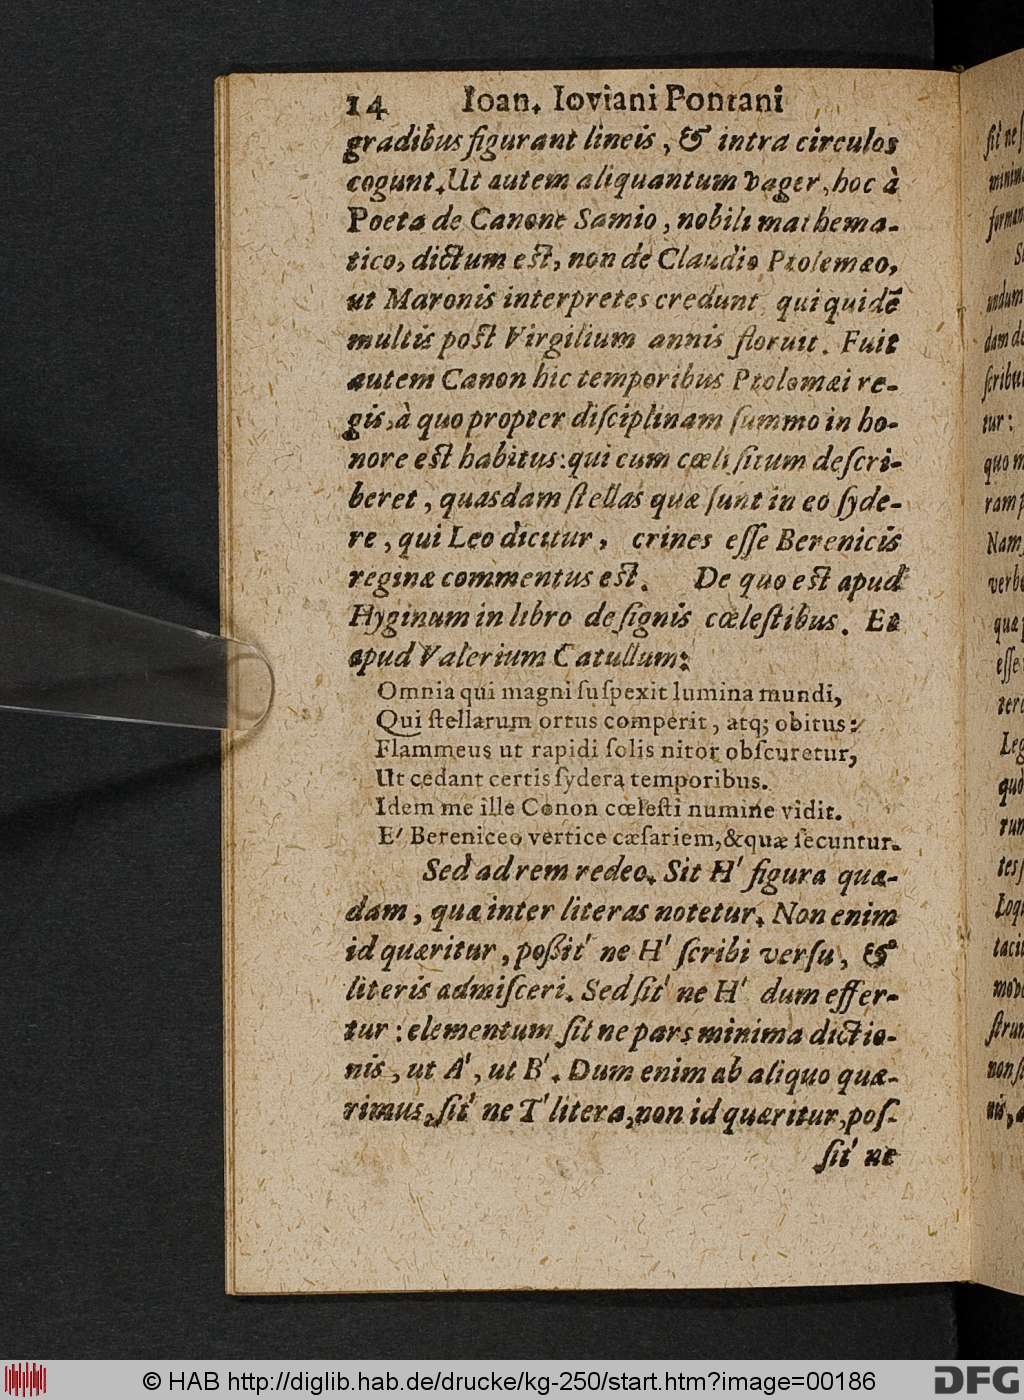 14 Ioan. Ioviani Pontani
gradibus figurant lineis, & intra circulos
cogunt. Ut autem aliquantum vager, hoc à
Poeta de Canone Samio, nobili mathema-
tico, dictum est, non de Claudio Ptolemæo,
ut Maronis interpretes credunt, qui quidē
multis post Virgilium annis floruit. Fuit
autem Canon hic temporibus Ptolomæi re-
gis, à quo propter disciplinam summo in ho-
nore est habitus: qui cum cœli situm descri-
beret, quasdam stellas quæ sunt in eo syde-
re, qui Leo dicitur, crines esse Berenicis
reginæ commentus est. De quo est apud
Hyginum in libro de signis cœlestibus. Et
apud Valerium Catullum:
Omnia qui magni suspexit lumina mundi,
Qui stellarum ortus comperit, atq; obitus:
Flammeus ut rapidi solis nitor obscuretur,
Ut cedant certis sydera temporibus.
Idem me ille Conon cœlesti numine vidit.
E' Bereniceo vertice cæsariem, & quæ secuntur.
Sed ad rem redeo. Sit H' figura quæ-
dam, quæ inter literas notetur. Non enim
id quæritur, poßit' ne H' scribi versu, &
literis admisceri. Sed sit' ne H' dum effer-
tur: elementum sit ne pars minima dictio-
nis, ut A', ut B'. Dum enim ab aliquo quæ-
rimus, sit' ne T' litera, non id quæritur, pos-
sit' ne
© HAB http://diglib.hab.de/drucke/kg-250/start.htm?image=00186
DFG